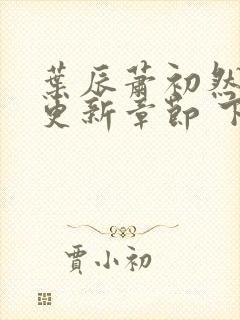 葉辰蕭初然
更新章節 下
賈小初